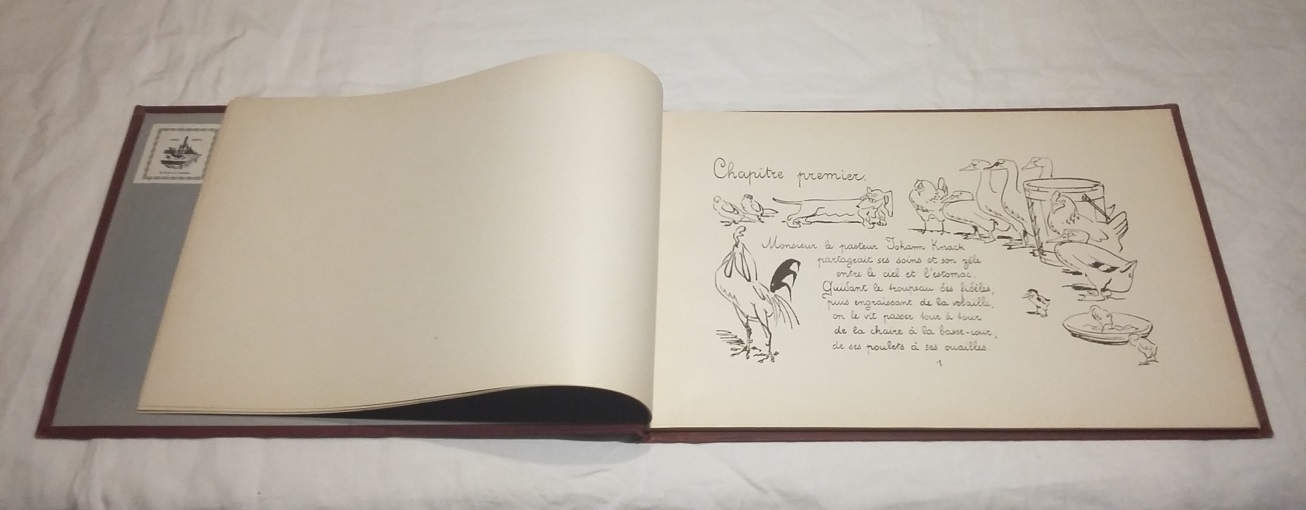 Chapitre premier.
Monsieur le pasteur Johann Knack
partageait ses soins et son zèle
entre le ciel et l'estomac.
Guidant le troupeau des fidèles,
puis engraissant de la volaille,
on le vit passer tour à tour
de la chaire à la basse-cour,
de ses poulets à ses ouailles.
1